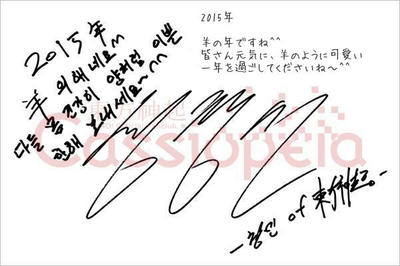 2015年
羊의 해네요^^
다들 건강히 양처럼 이쁜
한해 보내세요~^^
2015年
羊の年ですね^^
皆さん元気に、羊のように可愛い
一年を過ごしてくださいね~^^
東方神起
Cassiopeia
-창민 of 東方神起-